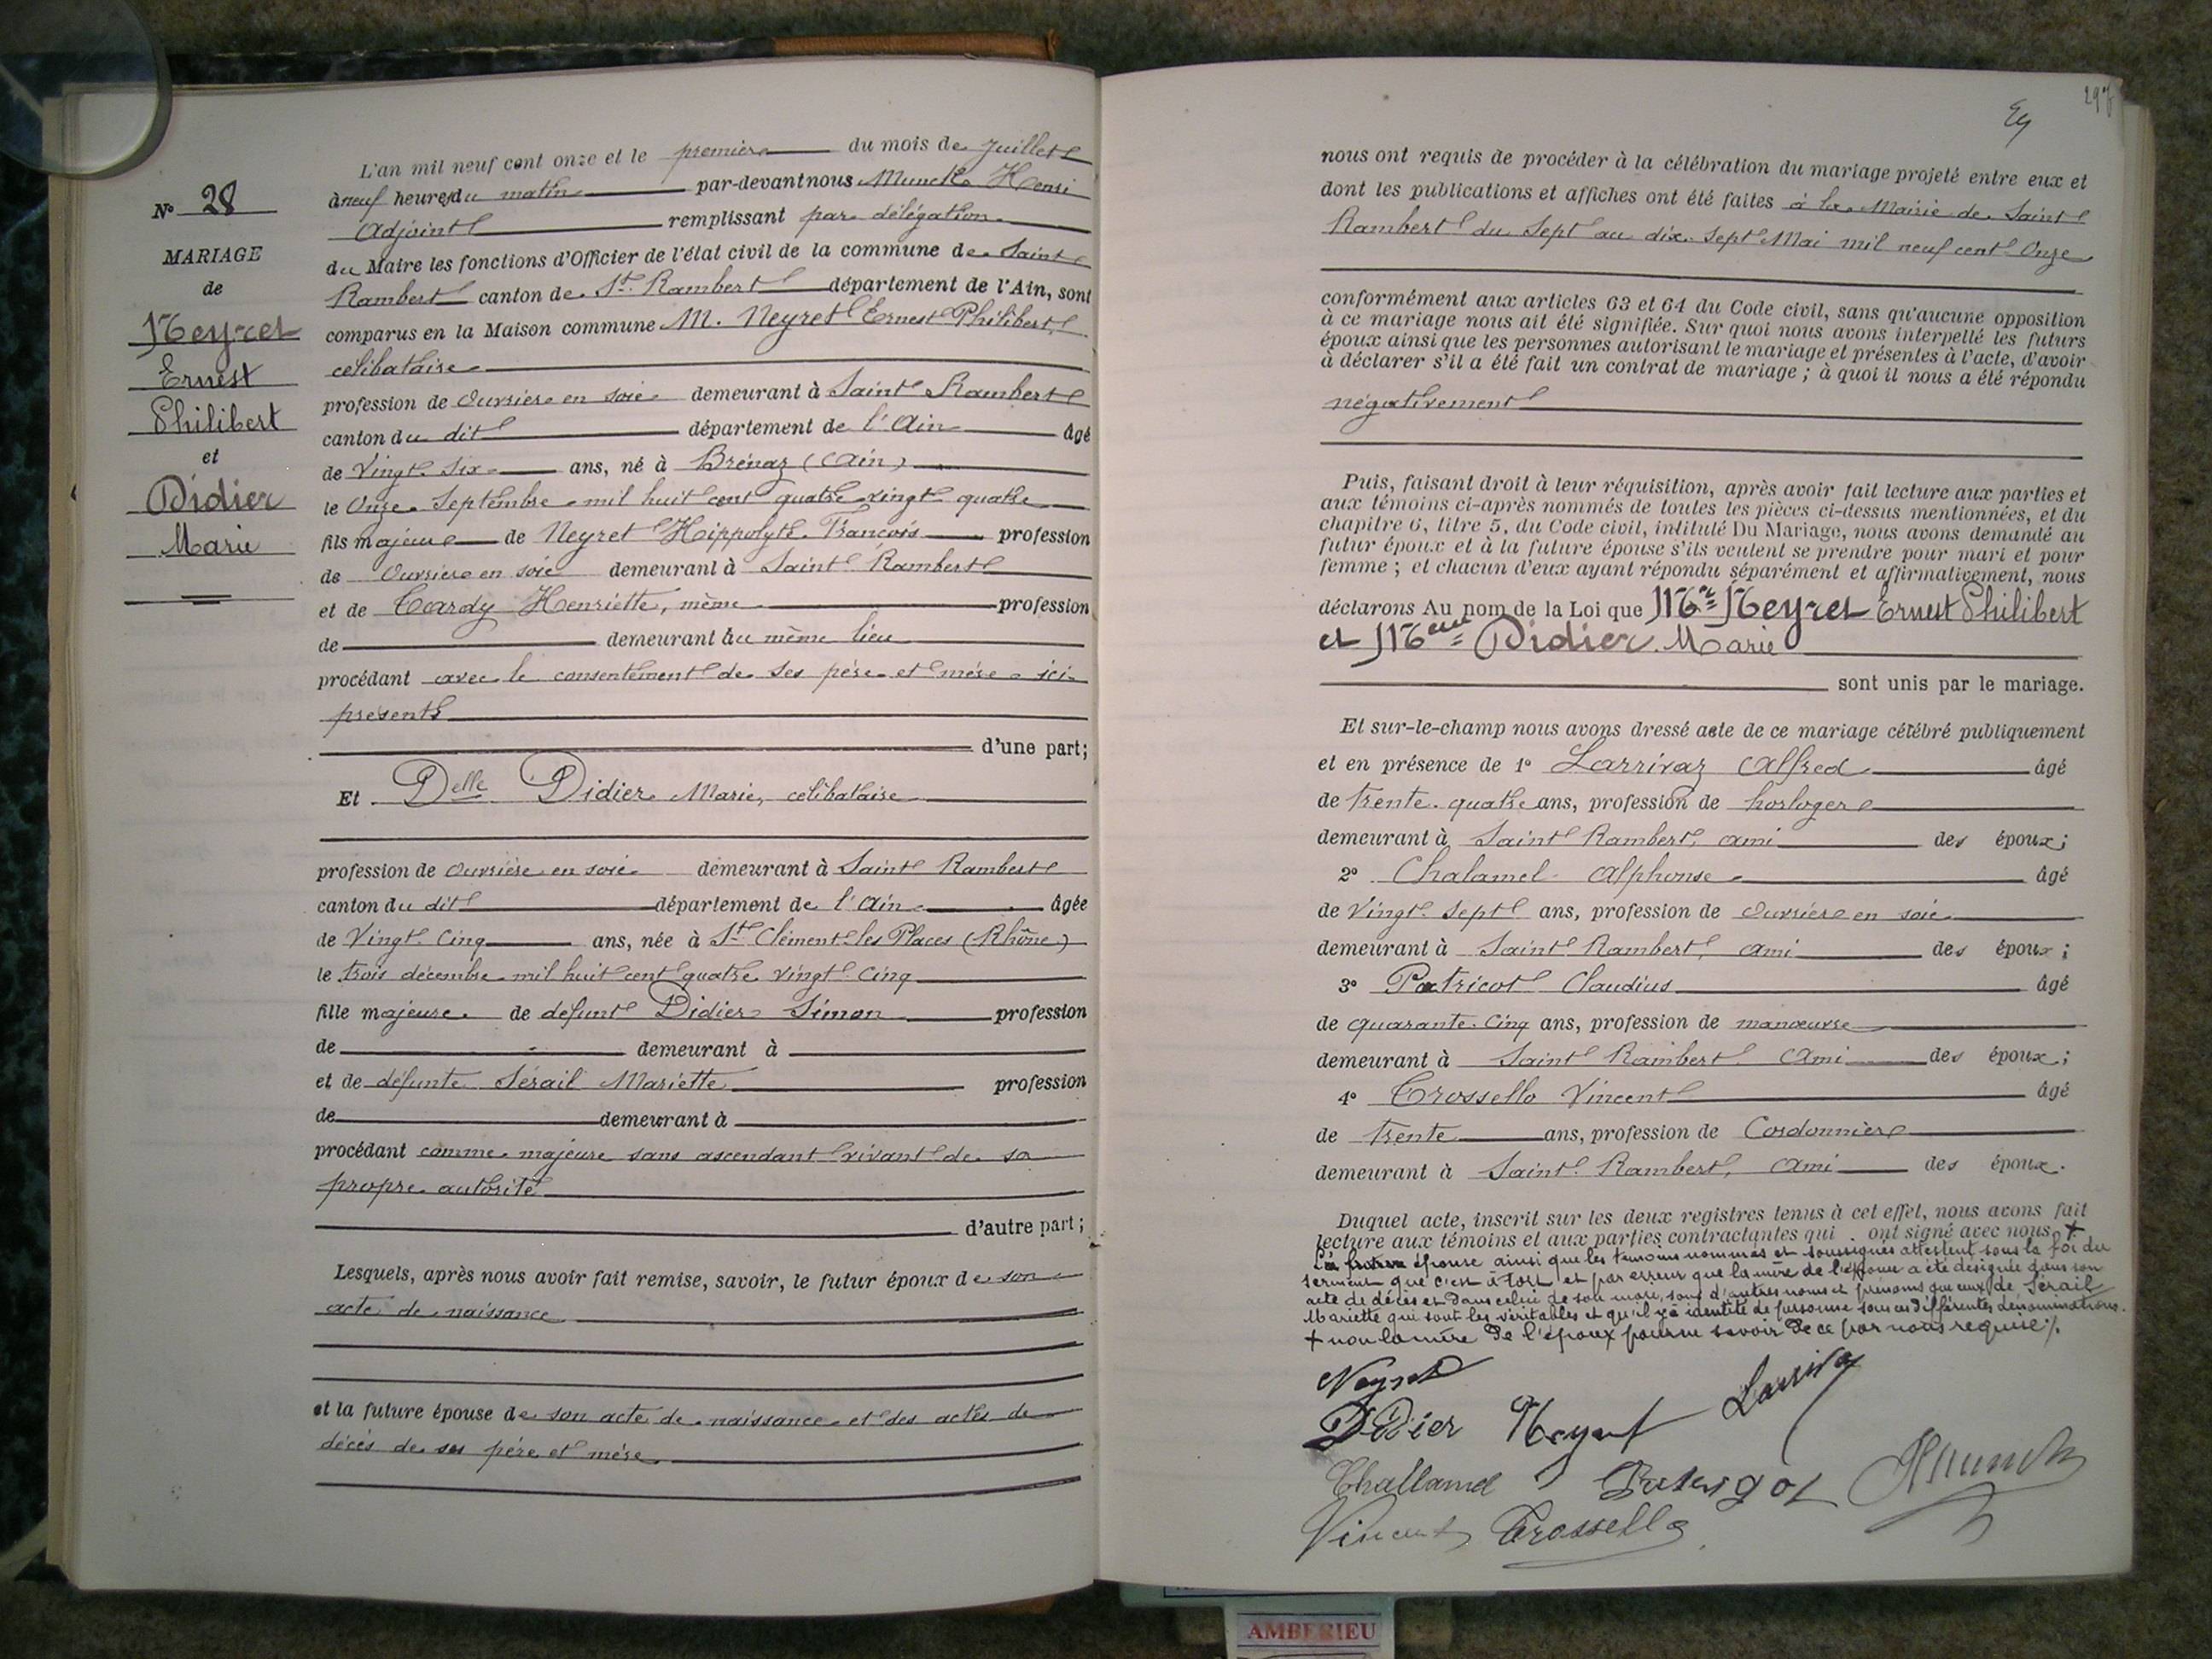 L'an mil neuf cent onze et le premier du mois de Juillet
à neuf heures du matin par-devant nous Munck Henri
Adjoint remplissant par délégation
du Maire les fonctions d'Officier de l'état civil de la commune de Saint
Rambert canton de St. Rambert département de l'Ain, sont
comparus en la Maison commune M. Neyret Ernest Philibert,
célibataire
profession de Ouvrier en soie demeurant à Saint Rambert
canton du dit département de l'Ain âgé
de Vingt Six ans, né à Brénaz (Ain)
le Onze Septembre mil huit cent quatre vingt quatre
fils majeur de Neyret Hippolyte François profession
de Ouvrier en soie demeurant à Saint Rambert
et de Cardy Henriette, même profession
de demeurant au même lieu
procédant avec le consentement de ses père et mère ici
présents
d'une part;
Et Delle Didier Marie, célibataire
profession de Ouvrière en soie demeurant à Saint Rambert
canton du dit département de l'Ain âgée
de Vingt Cinq ans, née à St Clément les Places (Rhône)
le trois décembre mil huit cent quatre vingt cinq
fille majeure de défunt Didier Simon profession
de demeurant à
et de défunte Sérail Mariette profession
de demeurant à
procédant comme majeure sans ascendant vivant de sa
propre autorité
d'autre part;
Lesquels, après nous avoir fait remise, savoir, le futur époux de son
acte de naissance
et la future épouse de son acte de naissance et des actes de
décès de ses père et mère
N° 28
MARIAGE
de
Neyret
Ernest
Philibert
et
Didier
Marie
nous ont requis de procéder à la célébration du mariage projeté entre eux et
dont les publications et affiches ont été faites à la Mairie de Saint
Rambert du Sept au dix Sept Mai mil neuf cent Onze
conformément aux articles 63 et 64 du Code civil, sans qu'aucune opposition
à ce mariage nous ait été signifiée. Sur quoi nous avons interpellé les futurs
époux ainsi que les personnes autorisant le mariage et présentes à l'acte, d'avoir
à déclarer s'il a été fait un contrat de mariage ; à quoi il nous a été répondu
négativement
Puis, faisant droit à leur réquisition, après avoir fait lecture aux parties et
aux témoins ci-après nommés de toutes les pièces ci-dessus mentionnées, et du
chapitre 6, titre 5, du Code civil, intitulé Du Mariage, nous avons demandé au
futur époux et à la future épouse s'ils veulent se prendre pour mari et pour
femme ; et chacun d'eux ayant répondu séparément et affirmativement, nous
déclarons Au nom de la Loi que Mr Neyret Ernest Philibert
et Melle Didier Marie
sont unis par le mariage.
Et sur-le-champ nous avons dressé acte de ce mariage célébré publiquement
et en présence de 1° Larrivaz Alfred âgé
de trente quatre ans, profession de horloger
demeurant à Saint Rambert, ami des époux;
2° Chalamel Alphonse âgé
de Vingt Sept ans, profession de Ouvrier en soie
demeurant à Saint Rambert, ami des époux;
3° Patricot Claudius âgé
de quarante Cinq ans, profession de manœuvre
demeurant à Saint Rambert ami des époux;
4° Crossello Vincent âgé
de trente ans, profession de Cordonnier
demeurant à Saint Rambert, ami des époux.
Duquel acte, inscrit sur les deux registres tenus à cet effet, nous avons fait
lecture aux témoins et aux parties contractantes qui ont signé avec nous +
La future épouse ainsi que les témoins nommés et soussignés attestent sous la foi du
serment que c'est à tort et par erreur que la mère de l'épouse a été désignée dans son
acte de décès et dans celui de son mari, sous d'autres noms et prénoms que ceux de Sérail
Mariette qui sont les véritables et qu'il y a identité de personne sous ces différentes dénominations.
+ non la mère de l'époux pour ne savoir de ce par nous requise
Neyret
Didier Neyret Larrivaz
Challamel Patricot HMunck
Vincent Crossello
AMBERIEU